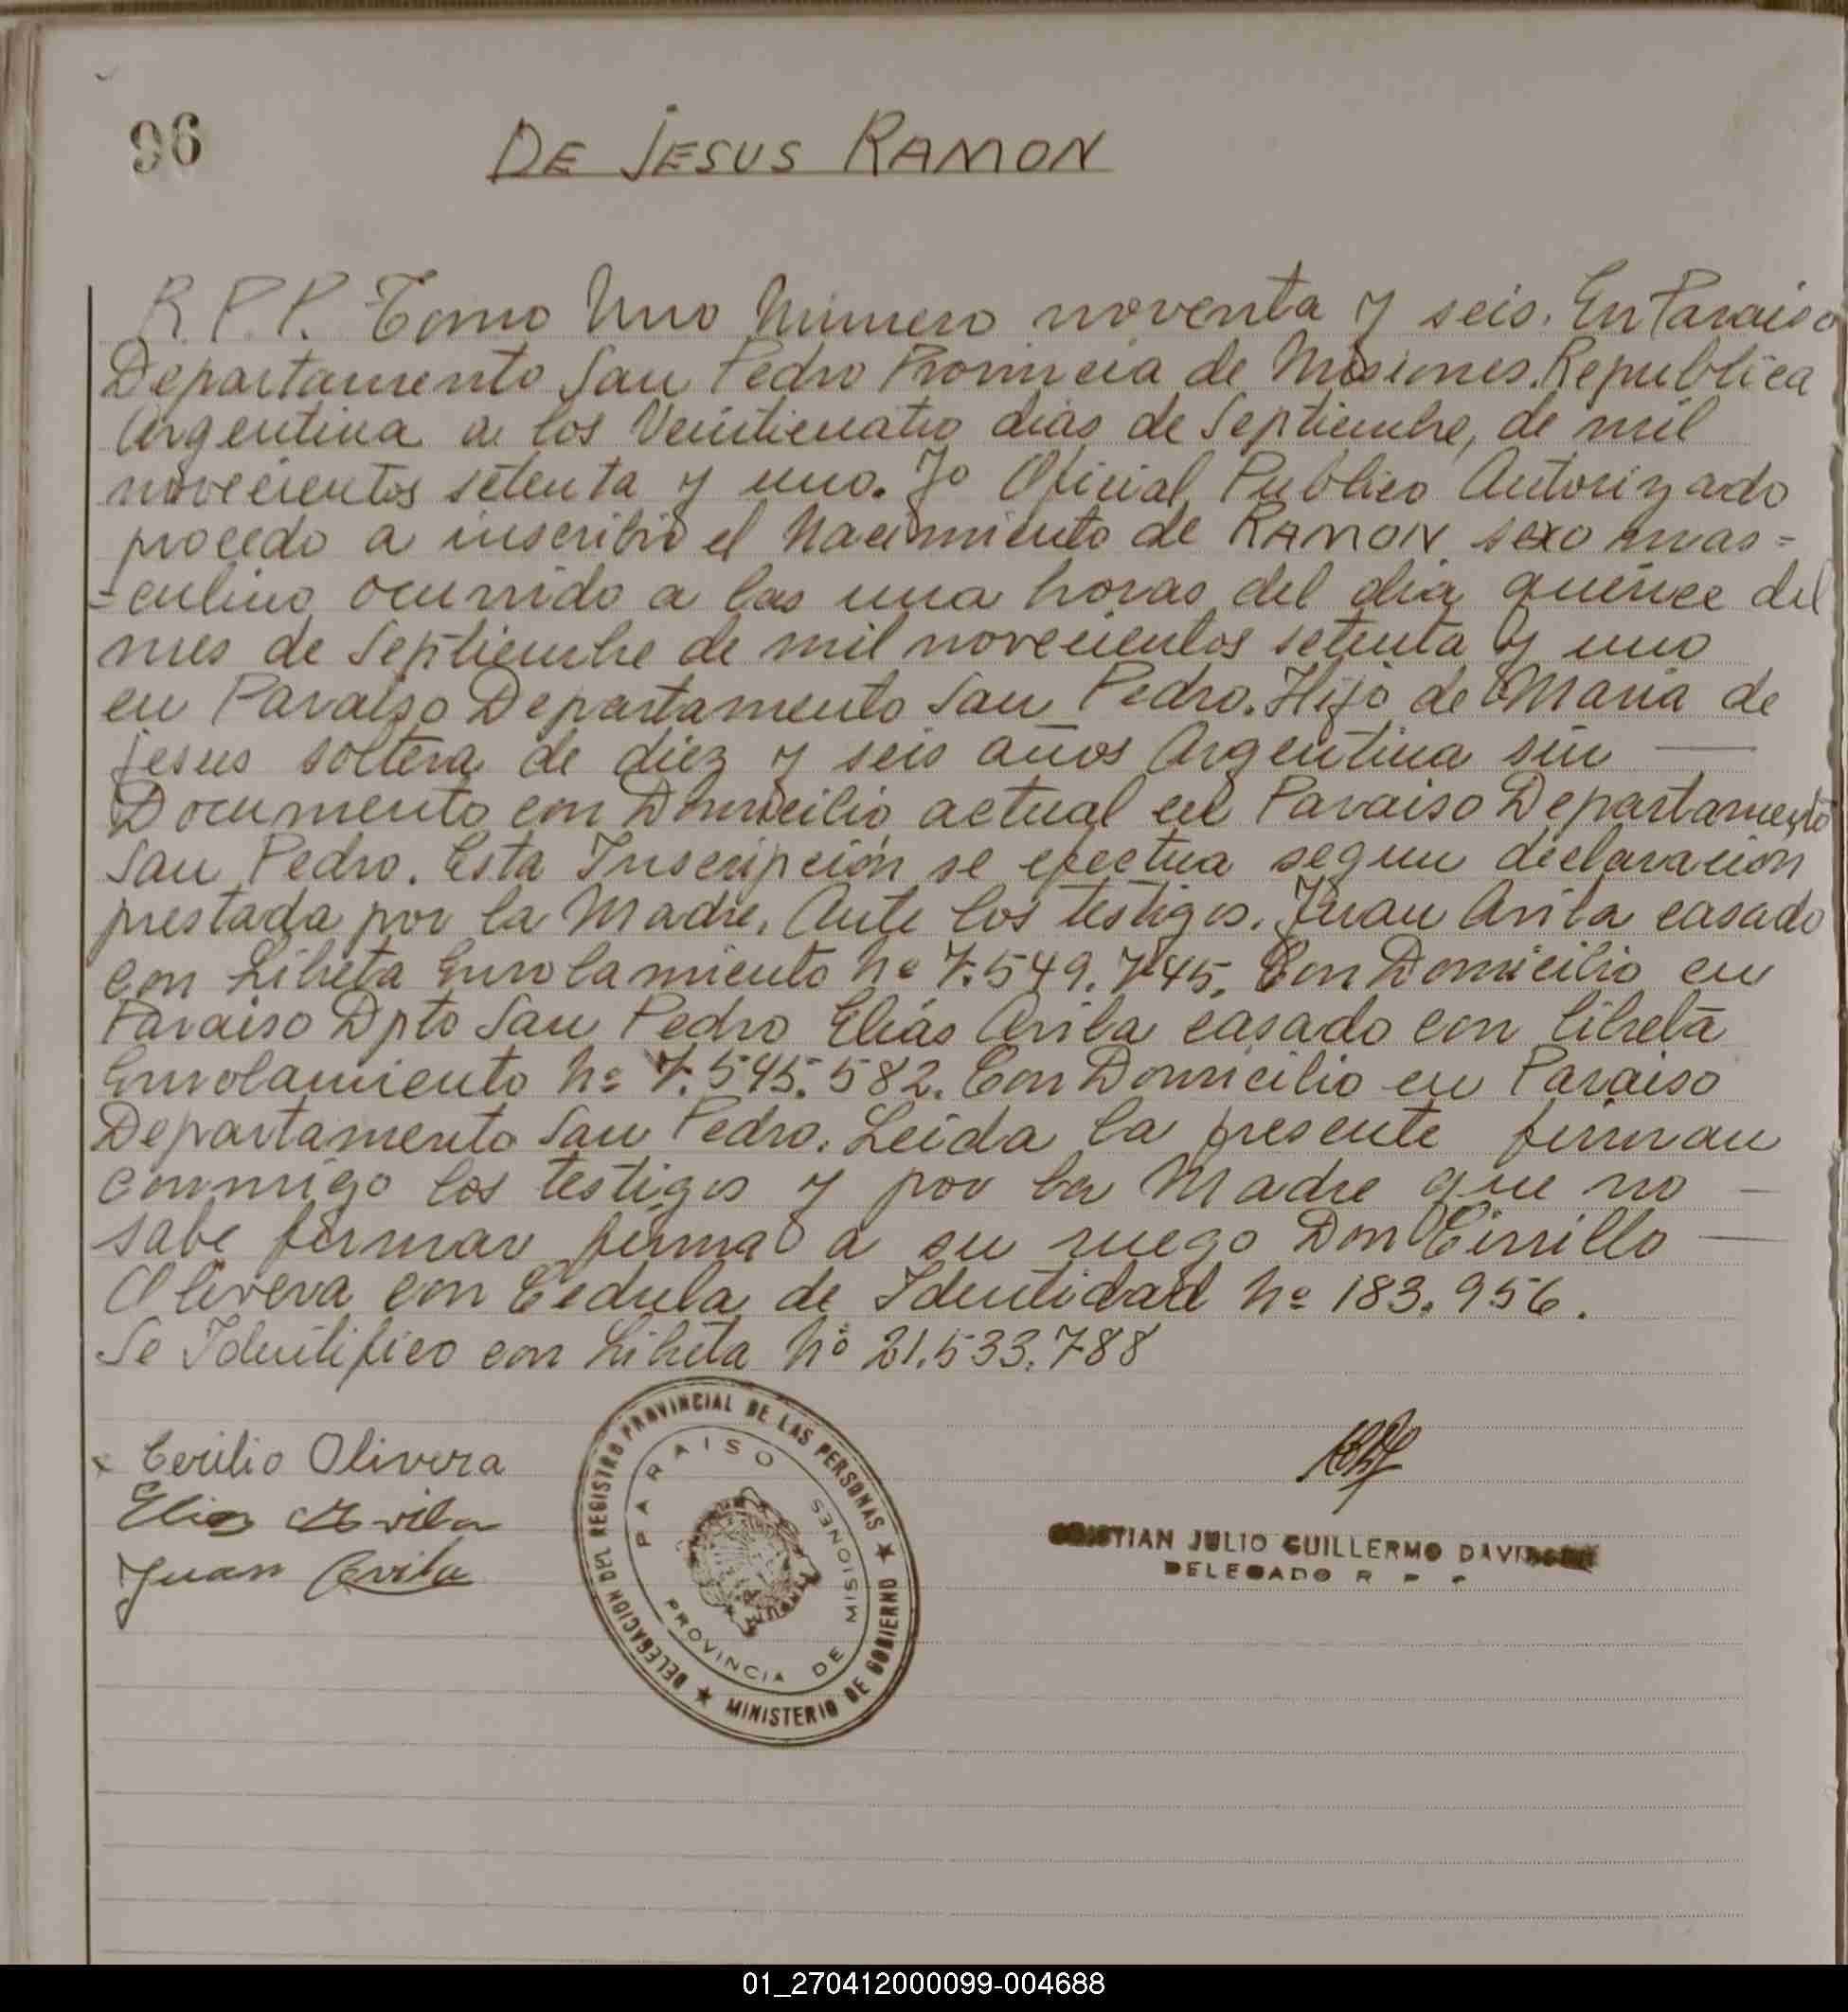 96
DE JESUS RAMON
R.P.P. Tomo Uno Número noventa y seis. En Paraiso
Departamento San Pedro Provincia de Misiones. Republica
Argentina a los Veinticuatro dias de Septiembre, de mil
novecientos setenta y uno. Yo Oficial Publico Autorizado
procedo a inscribir el Nacimiento de RAMON sexo mas=
=culino ocurrido a las una horas del dia quince del
mes de Septiembre de mil novecientos setenta y uno
en Paraiso Departamento San Pedro. Hijo de Maria de
Jesus soltera de diez y seis años Argentina sin —
Documento con Domicilio actual en Paraiso Departamento
San Pedro. Esta Inscripción se efectua segun declaracion
prestada por la Madre. Ante los testigos. Juan Avila casado
con Libreta Enrolamiento No 7.549.745. Con Domicilio en
Paraiso Dpto San Pedro Elias Avila casado con libreta
Enrolamiento No 7.545.582. Con Domicilio en Paraiso
Departamento San Pedro. Leida la presente firman
conmigo los testigos y por la Madre que no —
sabe firmar firma a su ruego Don Cirillo —
Olivera con Cedula de Identidad No 183.956.
Se Identifico con Libreta No 21.533.788
x Cerilio Olivera
Elias Avila
Juan Avila
DELEGACION DEL REGISTRO PROVINCIAL DE LAS PERSONAS ★ MINISTERIO DE GOBIERNO ★
PARAISO
PROVINCIA DE MISIONES
CRISTIAN JULIO GUILLERMO
DELEGADO R P P
01_270412000099-004688